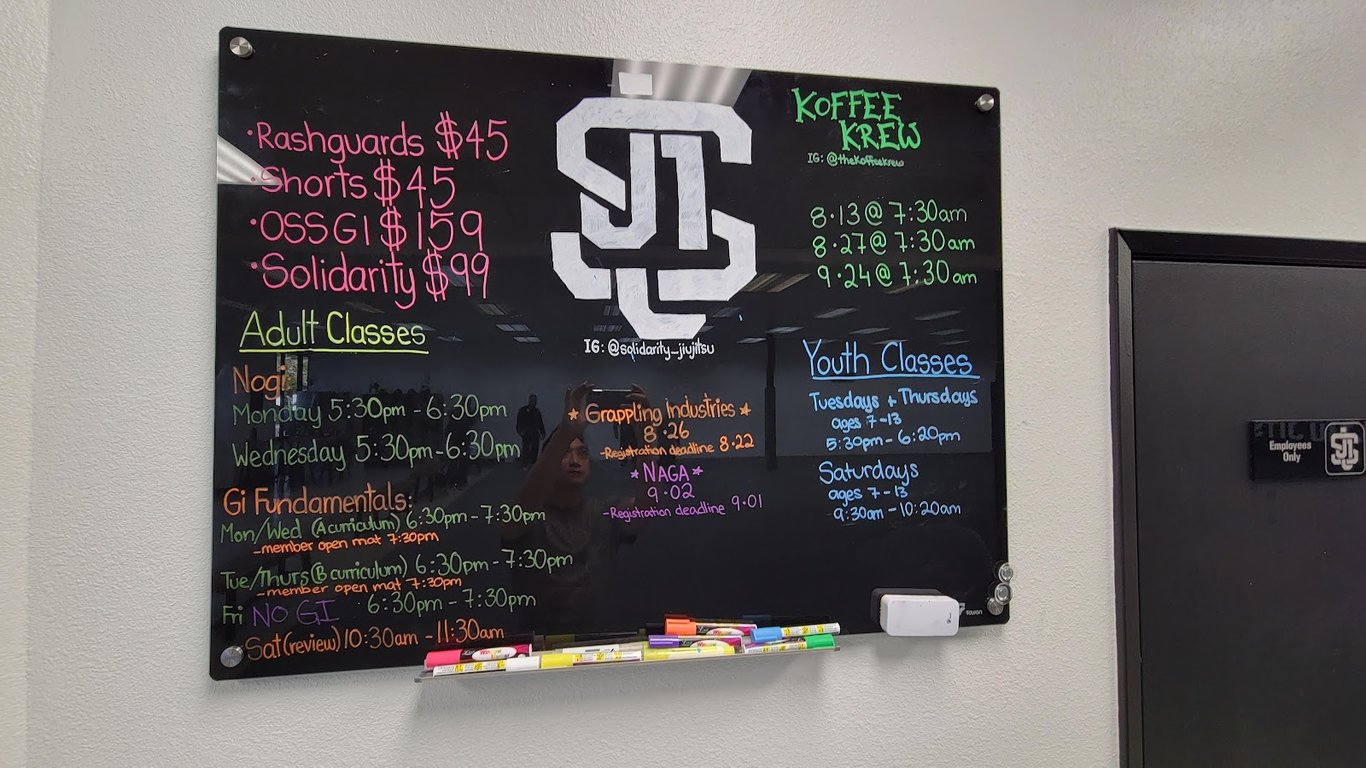 •Rashguards $45
•Shorts $45
•OSS GI $159
•Solidarity $99
Adult Classes
Nogi
Monday 5:30pm - 6:30pm
Wednesday 5:30pm - 6:30pm
Gi Fundamentals:
Mon/Wed (A curriculum) 6:30pm - 7:30pm
-member open mat 7:30pm
Tue/Thurs (B curriculum) 6:30pm - 7:30pm
-member open mat 7:30pm
Fri NO GI 6:30pm - 7:30pm
Sat (review) 10:30am - 11:30am
SJJC
IG: @solidarity_jiujitsu
★ Grappling Industries ★
8•26
-Registration deadline 8•22
★ NAGA ★
9•02
-Registration deadline 9•01
KOFFEE
KREW
IG: @thekoffeekrew
8•13 @ 7:30am
8•27 @ 7:30am
9•24 @ 7:30am
Youth Classes
Tuesdays + Thursdays
ages 7-13
5:30pm - 6:20pm
Saturdays
ages 7-13
9:30am - 10:20am
Employees
Only